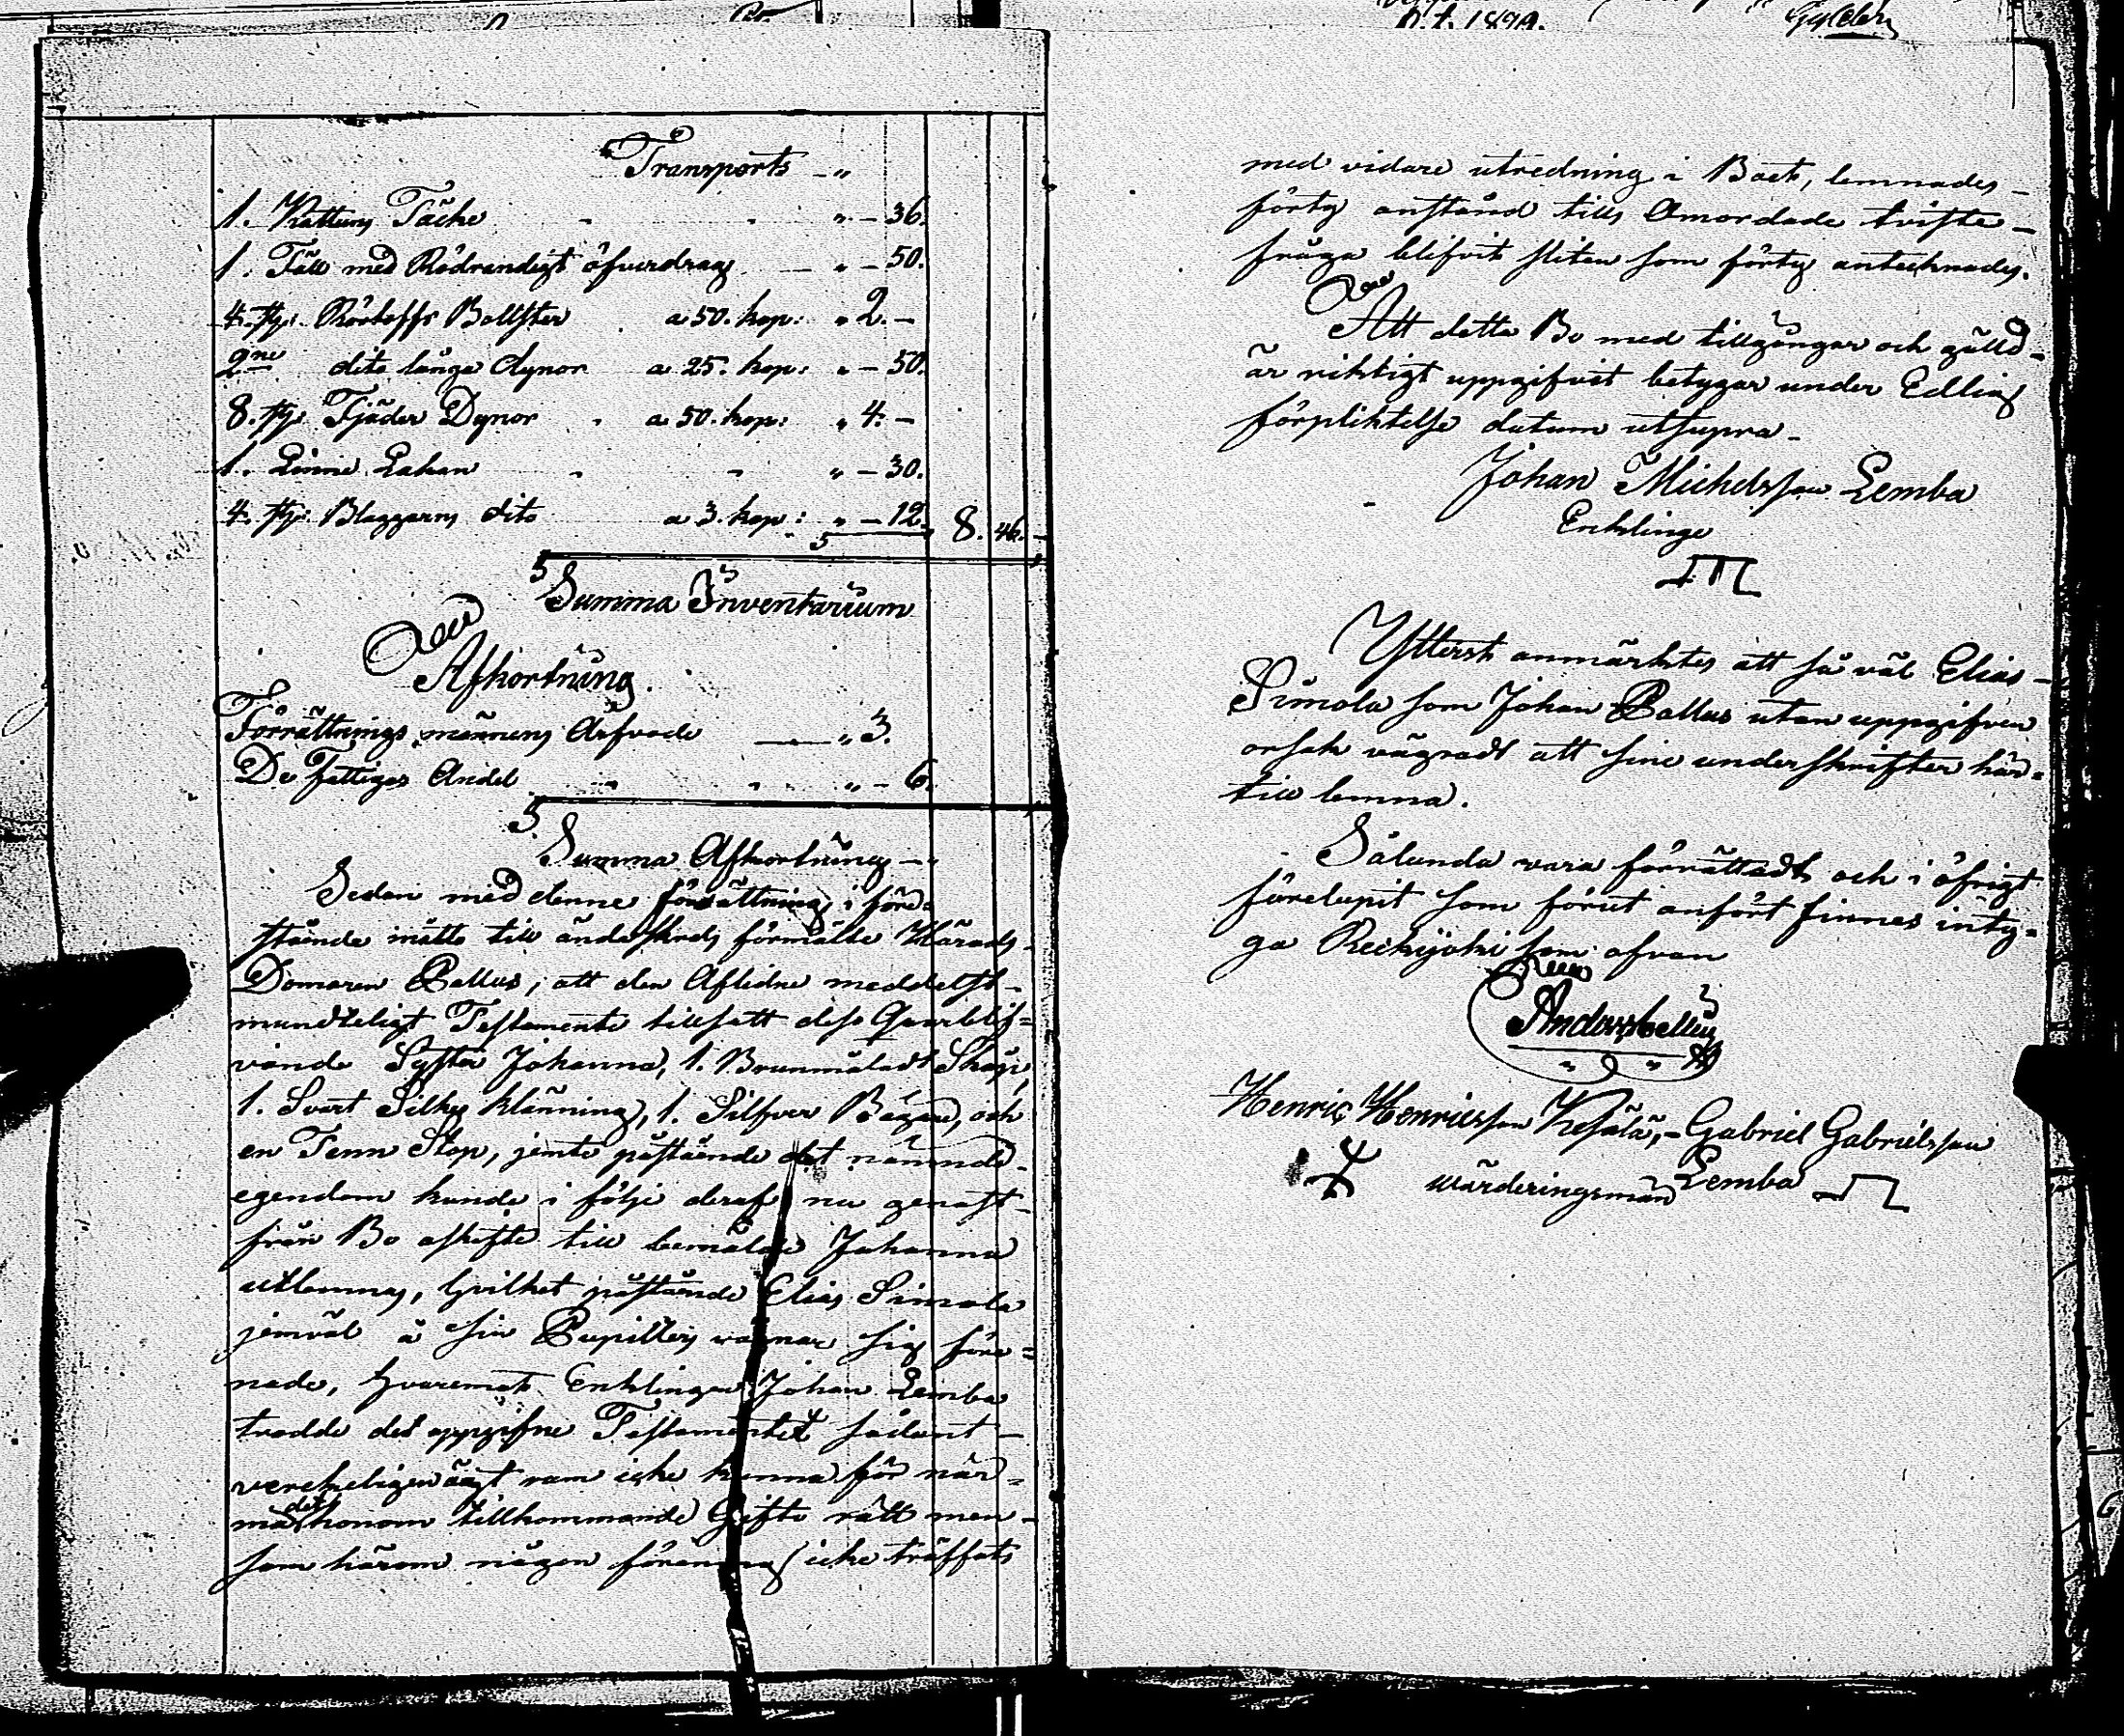 Transports — "
1. Kattuns Täcke " " " — 36.
1. Fäll med Rödrandigt öfverdrag — " — 50.
4. st: Bollster a 50. kop: " 2. —
2ne dito långa dynor a 25. kop: " — 50.
8. st: Fjäder Dynor " a 50. kop: " 4. —
1. Linne Lakan " " " — 30.
4. st: Blaggarns dito a 3. kop: " — 12. 8. 46. —
Summa Inventarium
Afkortning.
Förrättnings männens Arfvode — " 3.
De Fattiges Andel " " " — 6.
Summa Afkortning — "
Sedan med denne förrättning i före-
stående mått till ända skreds förmälte Härads-
Domaren Pallus, att den Aflidne meddelst
mundteligt Testamente tillsatt dess Qvarblif-
vande Syster Johanna, 1. Brunmåladt Skåp,
1. Svart Silkes klänning, 1. Silfver Bägare, och
en Tenn Stop, jemte påstående det nämnde
egendom kunde i följe deraf nu genast
från Bo åskifte till bemälde Johanna
utlemnas, hvilket påstående Elias Simola
jemväl å sin Pupillers vägnar sig före-
nade, hvaremot Enklingen Johan Lemba
trodde det uppgifne Testamentet sådant
verkeligen ägt rum icke kunna för när-
ma det honom tillkommande Gifto rätt men
som härom någon förening icke träffats
med vidare utredning i Boet, lemnades
förty anstånd tills Omordade tviste-
fråga blifvit sliten som förty antecknades.
Att dette Bo med tillgångar och gälld
är riktigt uppgifvit betygar under Edlig
förpliktelse datum utsupra —
Johan Michelsson Lemba
Enklinge
Ytterst anmärktes att så väl Elias
Simola som Johan Pallus utan uppgifven
orsak vägradt att sine underskrifter här-
till lemna.
Sålunda vara förrättadt och i öfrigt
förelupit som förut anfört finnes inty-
ga Reckijoki som ofvan
Henric Henricsson Kesälä, — Gabriel Gabrielsson
wärderingsmän Lemba